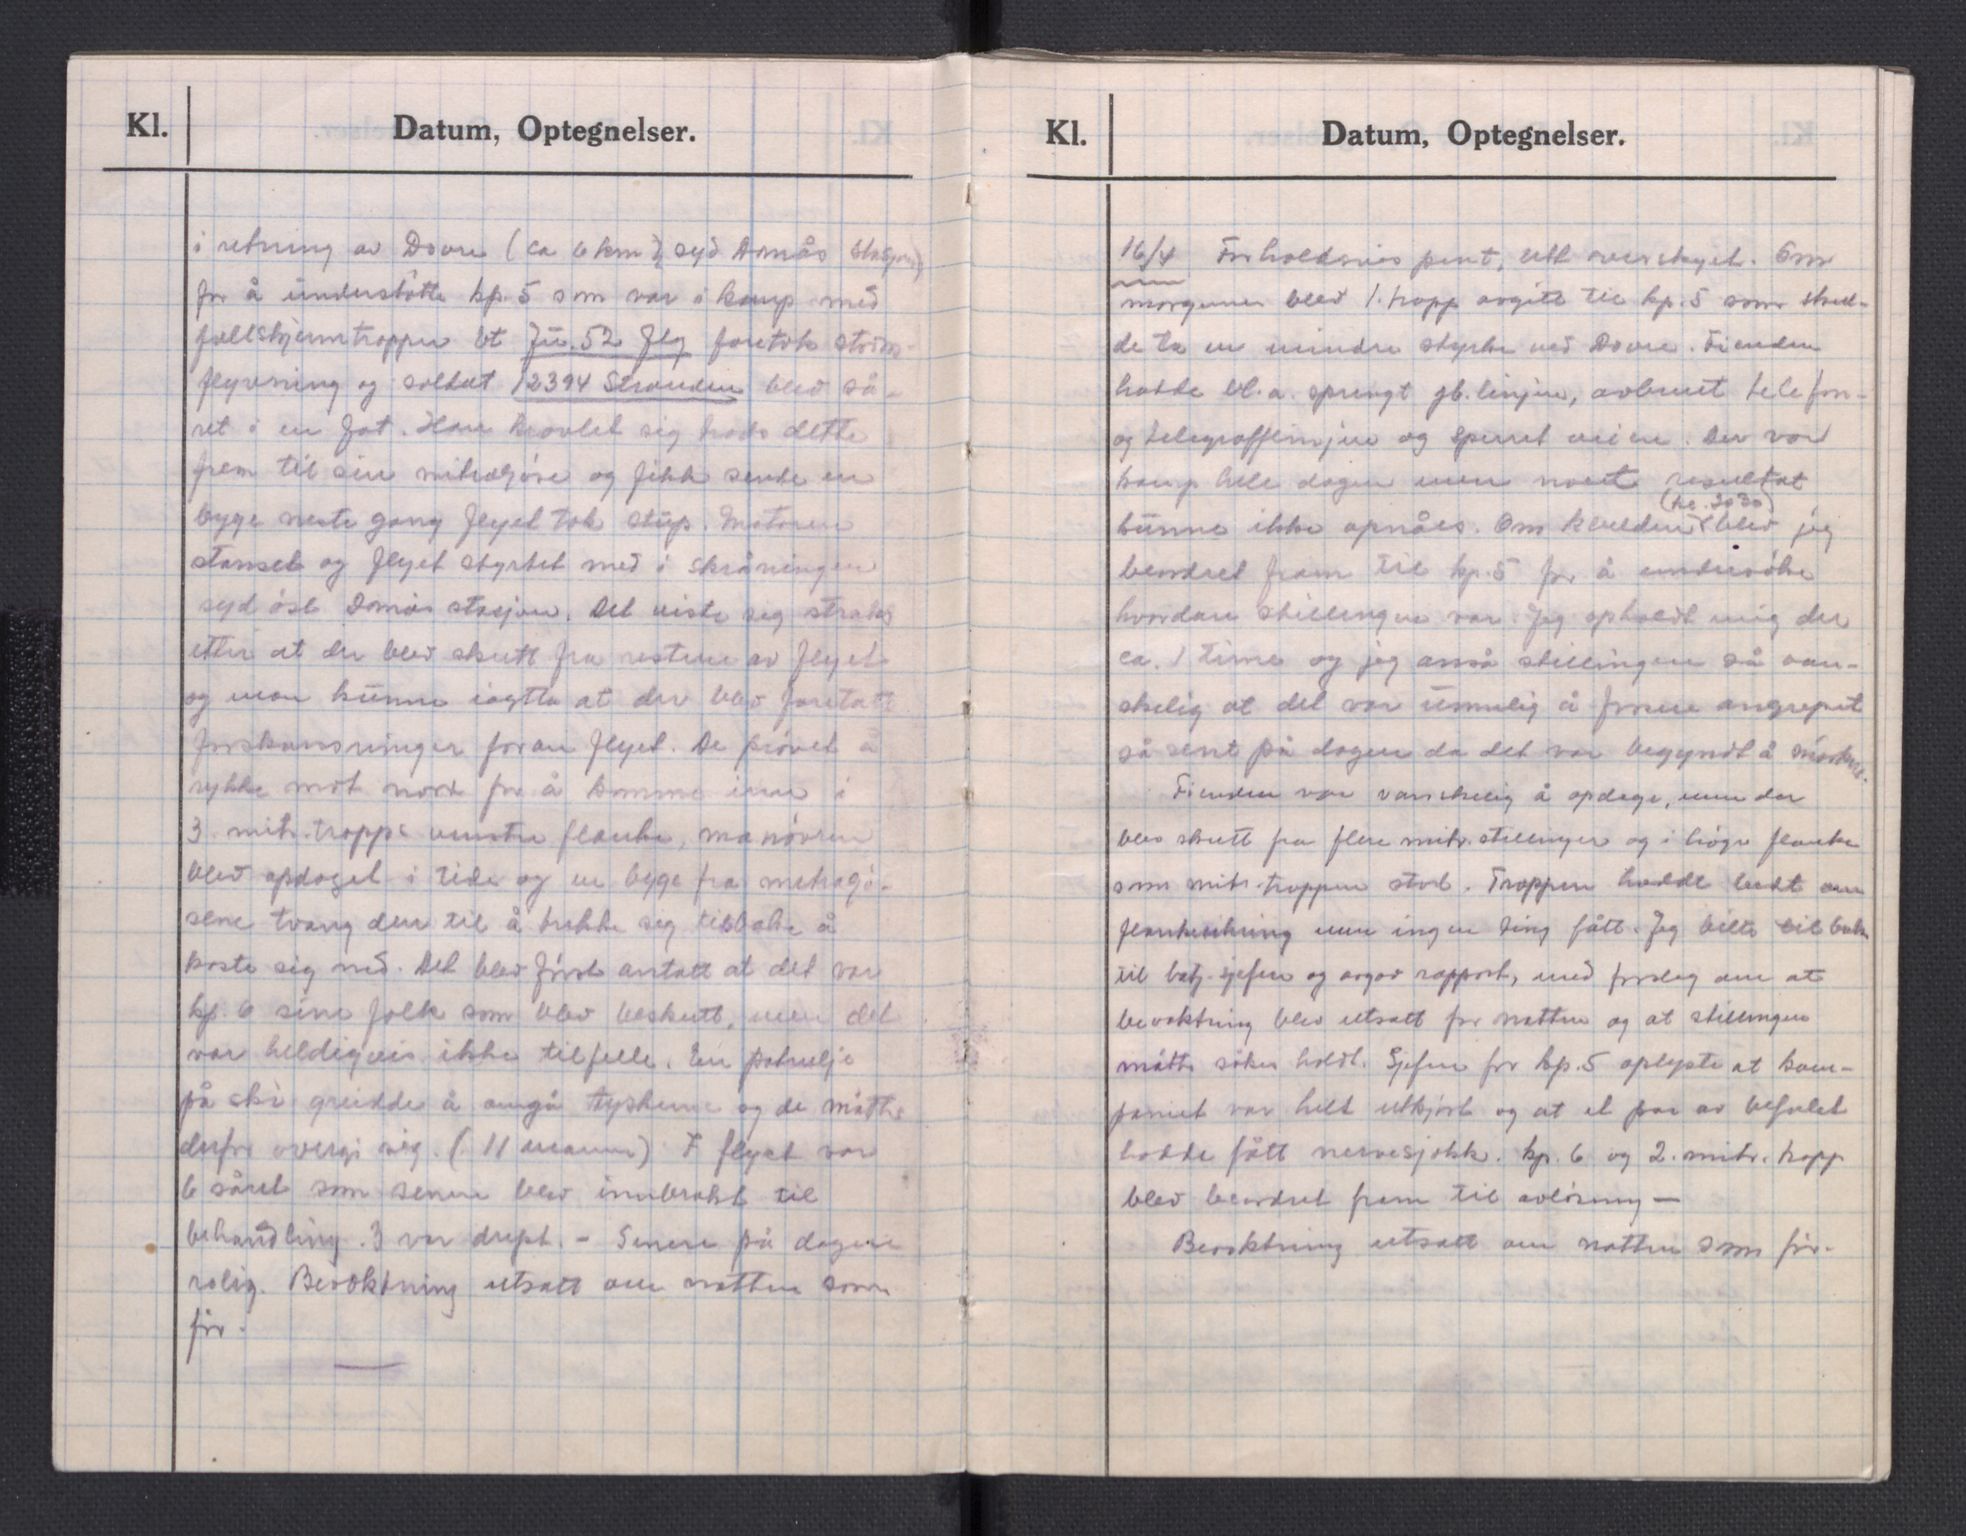 Kl. Datum, Optegnelser.
i retning av Dovre (ca 6 km syd Domås stasjon)
for å understøtte kp. 5 som var i kamp med
fallskjermtropper. Et Ju. 52 Fly foretok storm-
flyvning og soldat 12394 Stranden blev så-
ret i en fot. Han kravlet sig trods dette
frem til sin mitraljøse og fikk sende en
byge neste gang flyet tok stup. Motoren
stanset og flyet styrtet ned i skråningen
syd øst Domås stasjon. Det viste sig straks
etter at der blev skutt fra restene av flyet
og man kunne iagtta at der blev foretatt
forskansninger foran flyet. De prøvet å
rykke mot nord for å komme inn i
3. mitr. tropps venstre flanke, manøvren
blev opdaget i tide og en byge fra mitraljø-
sene tvang dem til å trekke sig tilbake å
kaste sig ned. Det blev først antatt at det var
kp. 6 sine folk som blev beskutt, men det
var heldigvis ikke tilfelle. En patrulje
på ski greidde å omgå tyskerne og de måtte
derfor overgi sig. (11 mann) I flyet var
6 såret som senere blev innbrakt til
behandling. 3 var drept. - Senere på dagen
rolig. Bevoktning utsatt om natten som
før.
Kl. Datum, Optegnelser.
16/4 Forholdsvis pent, lett overskyet. Om
morgenen blev 1. tropp avgitt til kp. 5 som skul-
de ta en mindre styrke ved Dovre. Fienden
hadde bl. a. sprengt jb. linjen, avbrutt telefon-
og telegraflinjen og sperret veien. Der var
kamp hele dagen men noe resultat
kunne ikke opnåes. Om kvelden (kl. 2030) blev jeg
beordret fram til kp. 5 for å undersøke
hvordan stillingen var. Jeg opholdt mig der
ca. 1 time og jeg anså stillingen så van-
skelig at det var umulig å forsere angrepet
så sent på dagen da det var begyndt å mørkne.
Fienden var vanskelig å opdage, men der
blev skutt fra flere mitr. stillinger og i høgre flanke
som mitr. troppen stod. Troppen hadde bedt om
flankesikring men ingen ting fått. Jeg ilte tilbake
til batj. sjefen og avgav rapport, med forslag om at
bevoktning blev utsatt for natten og at stillingen
måtte søkes holdt. Sjefen for kp. 5 oplyste at kom-
paniet var helt utkjørt og at et par av befalet
hadde fått nervesjokk. kp. 6 og 2. mitr. tropp
blev beordret frem til avløsning —
Bevoktning utsatt om natten som før.